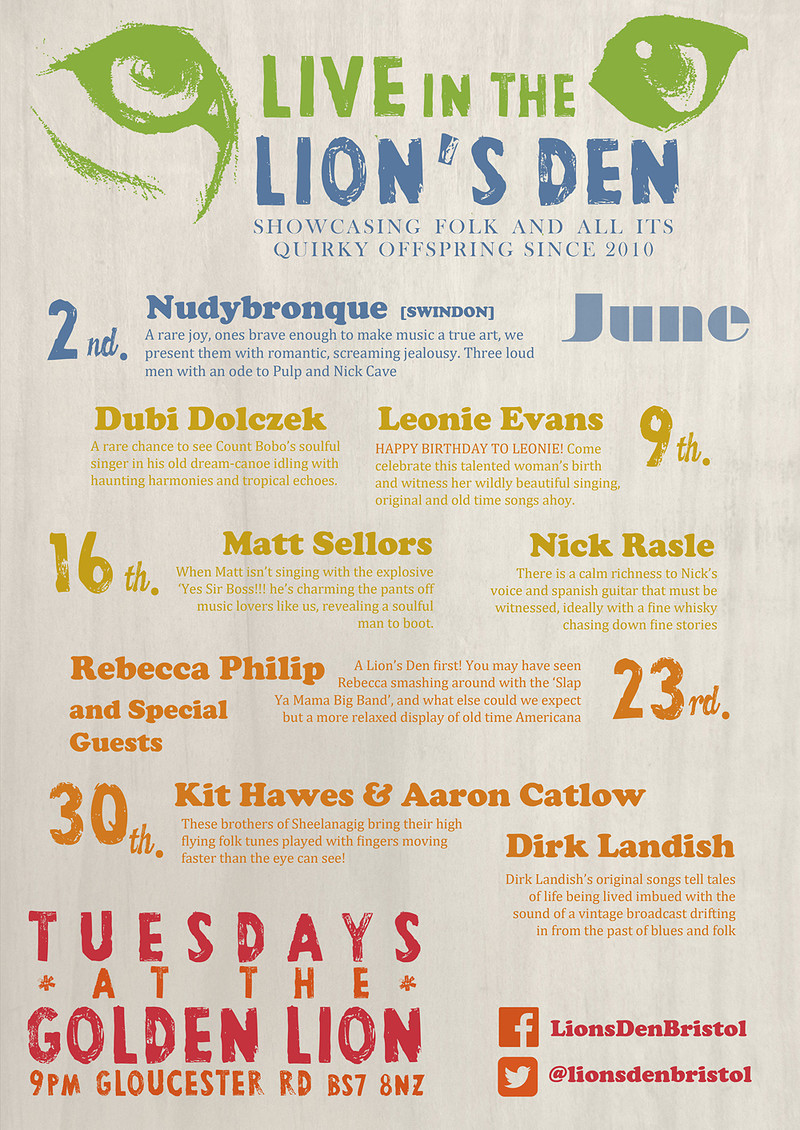 LIVE IN THE
LION'S DEN
SHOWCASING FOLK AND ALL ITS
QUIRKY OFFSPRING SINCE 2010
June
2nd.
Nudybronque [SWINDON]
A rare joy, ones brave enough to make music a true art, we
present them with romantic, screaming jealousy. Three loud
men with an ode to Pulp and Nick Cave
Dubi Dolczek
A rare chance to see Count Bobo's soulful
singer in his old dream-canoe idling with
haunting harmonies and tropical echoes.
Leonie Evans
HAPPY BIRTHDAY TO LEONIE! Come
celebrate this talented woman's birth
and witness her wildly beautiful singing,
original and old time songs ahoy.
9th.
16th.
Matt Sellors
When Matt isn't singing with the explosive
'Yes Sir Boss!!! he's charming the pants off
music lovers like us, revealing a soulful
man to boot.
Nick Rasle
There is a calm richness to Nick's
voice and spanish guitar that must be
witnessed, ideally with a fine whisky
chasing down fine stories
Rebecca Philip
and Special
Guests
A Lion's Den first! You may have seen
Rebecca smashing around with the 'Slap
Ya Mama Big Band', and what else could we expect
but a more relaxed display of old time Americana
23rd.
30th.
Kit Hawes & Aaron Catlow
These brothers of Sheelanagig bring their high
flying folk tunes played with fingers moving
faster than the eye can see!
Dirk Landish
Dirk Landish's original songs tell tales
of life being lived imbued with the
sound of a vintage broadcast drifting
in from the past of blues and folk
TUESDAYS
* AT THE *
GOLDEN LION
9PM GLOUCESTER RD BS7 8NZ
LionsDenBristol
@lionsdenbristol